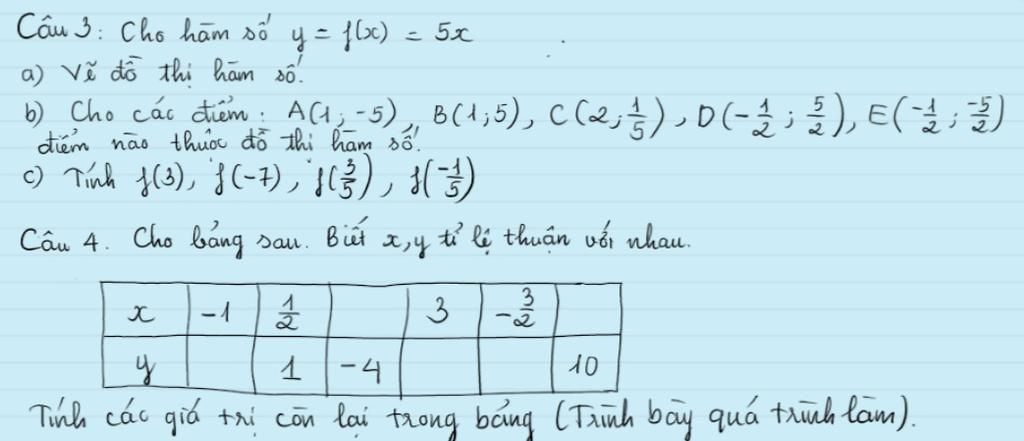 Câu 3: Cho hàm số y = f(x) = 5x
a) Vẽ đồ thị hàm số.
b) Cho các điểm: A(1; -5), B(1; 5), C(2; 1/5), D(-1/2; 5/2), E(-1/2; -5/2)
điểm nào thuộc đồ thị hàm số.
c) Tính f(3), f(-7), f(3/5), f(-1/5)
Câu 4. Cho bảng sau. Biết x, y tỉ lệ thuận với nhau.
x -1 1/2 3 -3/2
y 1 -4 10
Tính các giá trị còn lại trong bảng (Trình bày quá trình làm).